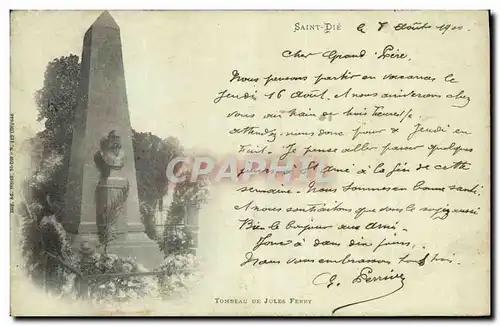 SAINT-DIÉ
le 8 Août 1900
Cher Grand Père,
Nous pensons partir en vacances le
Jeudi 16 Août. Et nous arriverons chez
vous au train de trois heures
attendez nous donc pour Jeudi en
huit. Je pense aller passer quelques
à la fin de cette
semaine. Nous sommes en bonne santé,
et nous souhaitons que vous le soyez aussi
Bien le bonjour aux amis.
dans dix jours,
Nous vous embrassons
G. Perrine
TOMBEAU DE JULES FERRY
CPARAMA